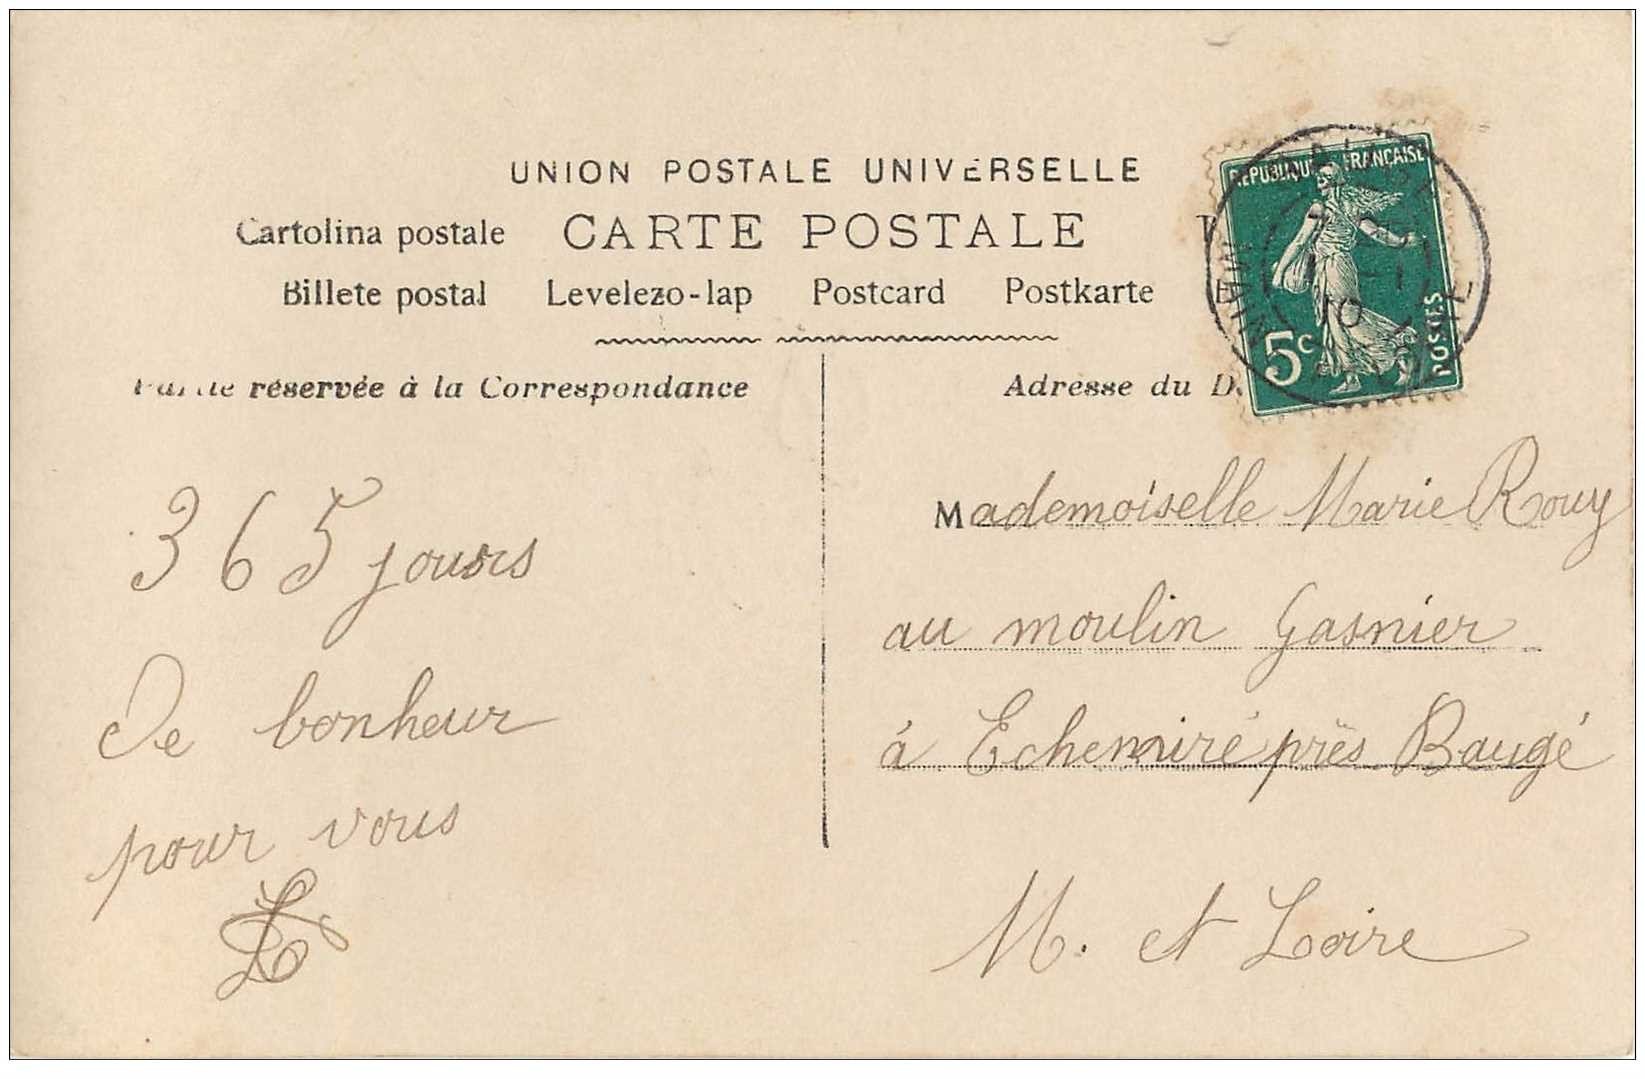 UNION POSTALE UNIVERSELLE
Cartolina postale CARTE POSTALE
Billete postal Levelezo-lap Postcard Postkarte
Partie réservée à la Correspondance
Adresse du
REPUBLIQUE FRANÇAISE
5c POSTES
10
365 jours
De bonheur
pour vous
Mademoiselle Marie Rouy
au moulin Gasnier
à Echemiré près Baugé
M. et Loire